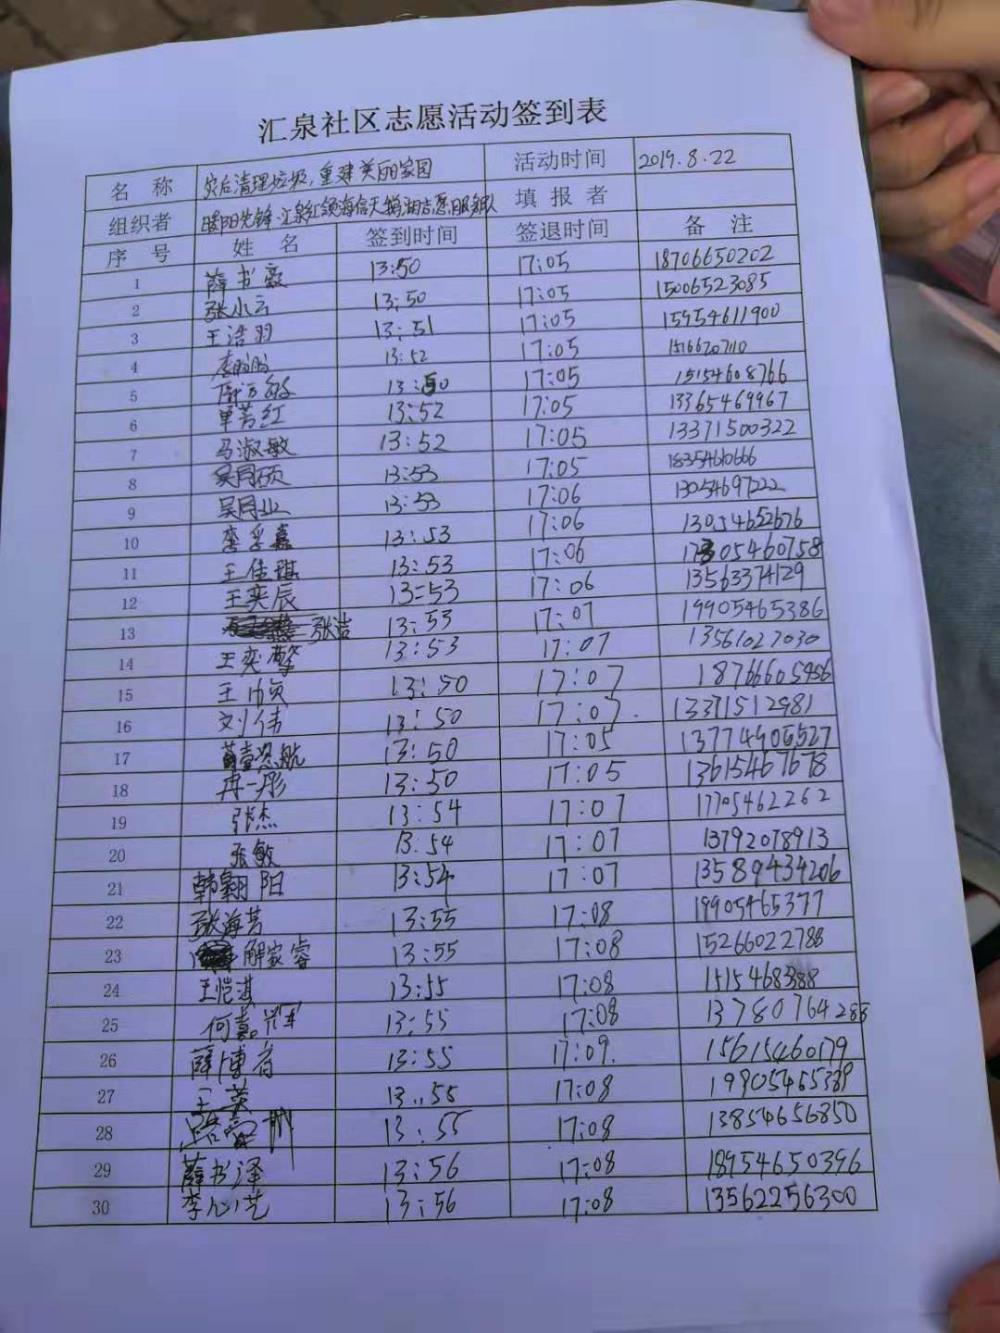 汇泉社区志愿活动签到表
名 称 灾后清理垃圾,重建美丽家园 活动时间 2019.8.22
组织者 暖阳先锋·汇泉红领海信天鹅湖志愿服务队 填报者
序 号 姓 名 签到时间 签退时间 备 注
1 薛书豪 13:50 17:05 18706650202
2 张小云 13:50 17:05 15006523085
3 王浩羽 13:51 17:05 15954611900
4 李盼盼 13:52 17:05
5 13:50 17:05 15154608766
6 单芳红 13:52 17:05 13365469967
7 马淑敏 13:52 17:05 13371500322
8 吴同硕 13:53 17:05 18354610666
9 吴同业 13:53 17:06 13054697222
10 李孚嘉 13:53 17:06 13054652676
11 王佳琪 13:53 17:06 17305460758
12 王奕辰 13:53 17:06 13563374129
13 张洁 13:53 17:07 19905465386
14 王奕擎 13:53 17:07 13561027030
15 13:50 17:07
16 刘伟 13:50 17:07. 13371512981
17 13:50 17:05 13774906527
18 冉一彤 13:50 17:05 13615467678
19 张杰 13:54 17:07 17705462262
20 张敏 13:54 17:07 13792078913
21 韩翱阳 13:54 17:07 13589434206
22 张海芳 13:55 17:08 19905465377
23 解家睿 13:55 17:08 15266022788
24 王恺淇 13:55 17:08
25 何嘉 13:55 17:08 13780764288
26 薛博睿 13:55 17:09. 15615460179
27 王英 13:55 17:08 19905465389
28 13:55 17:08 13854656850
29 薛书泽 13:56 17:08 18954650396
30 李心艺 13:56 17:08 13562256300